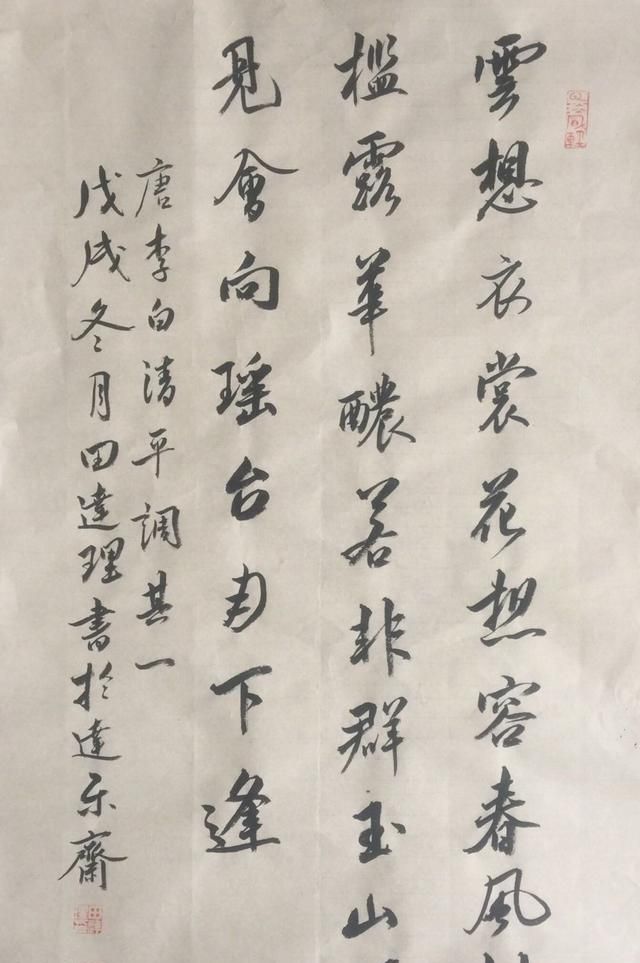 雲想衣裳花想容春風
檻露華醲若非群玉山
見會向瑶台月下逢
唐李白清平調其一
戊戌冬月田達理書於達乐齋